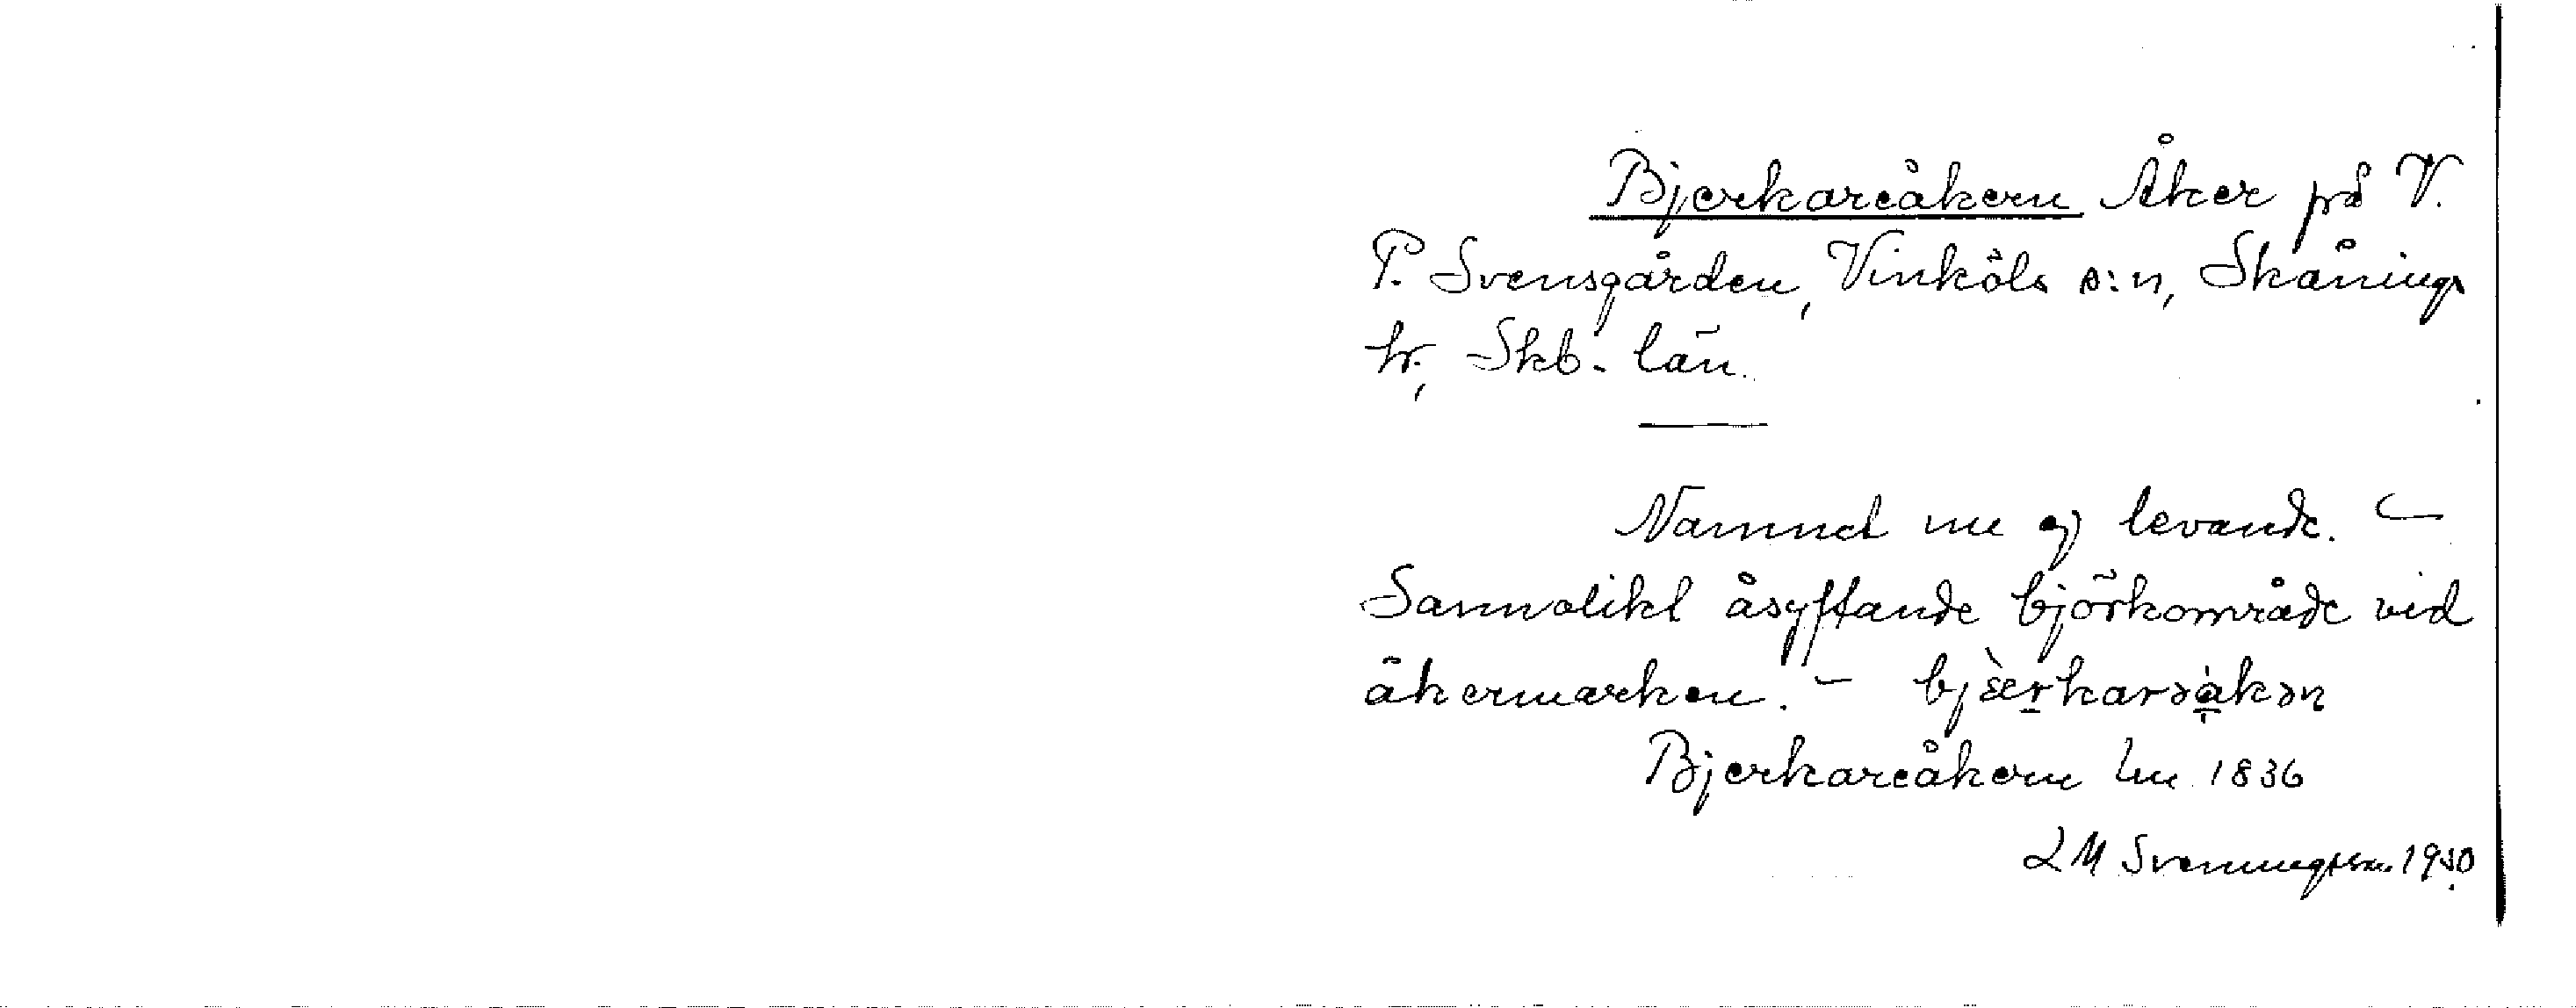 Bjerkareåkern Åker på V.
P. Svensgården, Vinköls s:n, Skånings
hr., Skb. län.
Namnet nu ej levande. –
Sannolikt åsyftande björkområde vid
åkermarken. – bjæ̀rkarəåkən
Bjerkareåkern Lm 1836
LM Svenungsson 1930